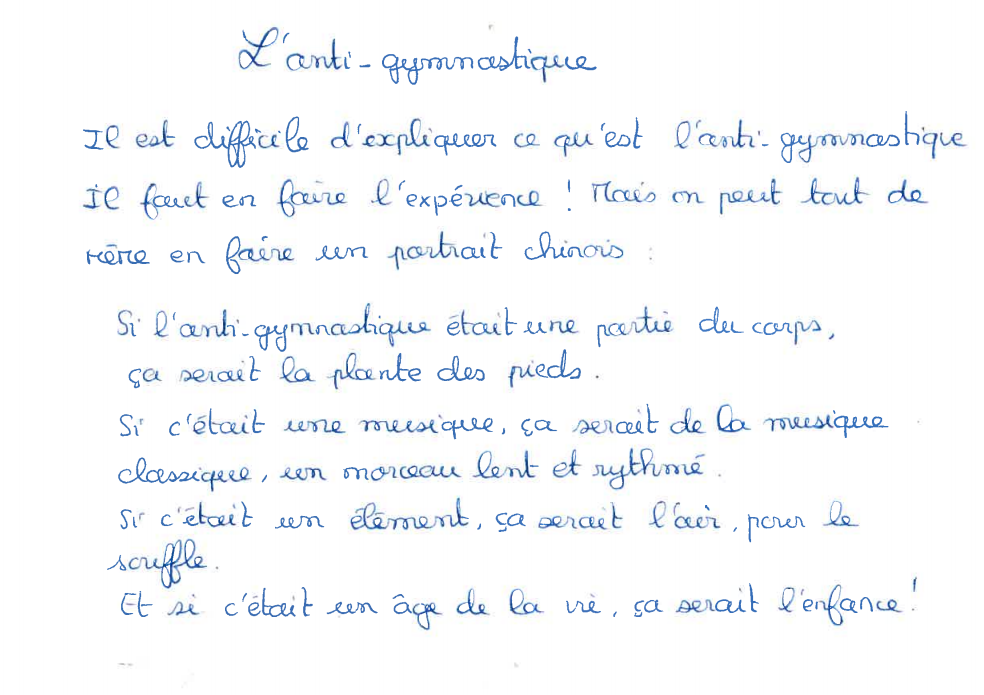 L'anti-gymnastique
Il est difficile d'expliquer ce qu'est l'anti-gymnastique
Il faut en faire l'expérience ! Mais on peut tout de
même en faire un portrait chinois :
Si l'anti-gymnastique était une partie du corps,
ça serait la plante des pieds.
Si c'était une musique, ça serait de la musique
classique, un morceau lent et rythmé.
Si c'était un élément, ça serait l'air, pour le
souffle.
Et si c'était un âge de la vie, ça serait l'enfance !